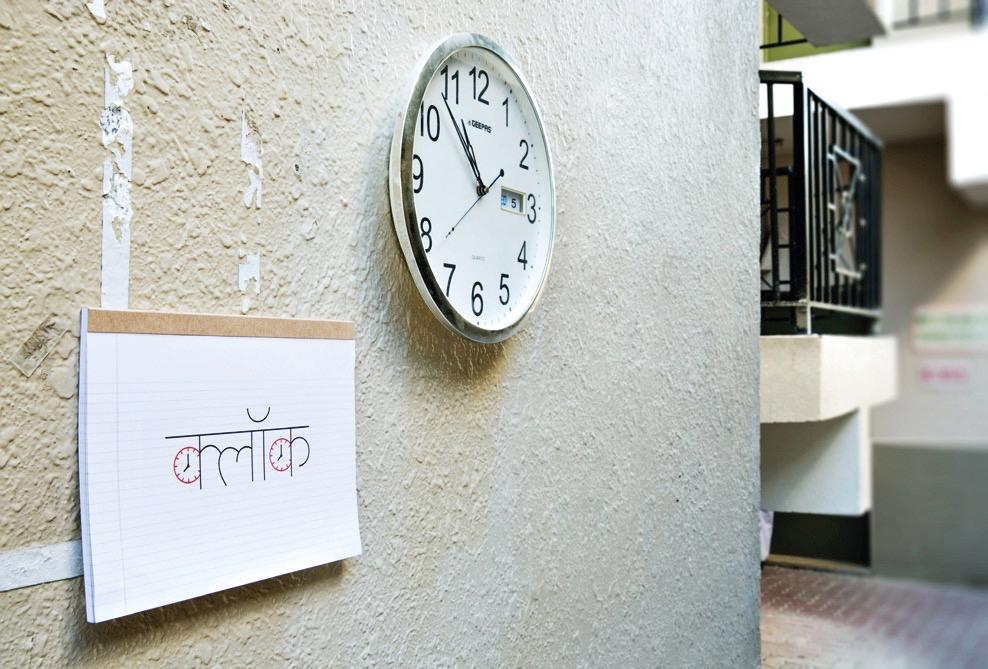 12
1
2
3
4
5
6
7
8
9
10
11
GEEPAS
5
QUARTZ
क्लॉक